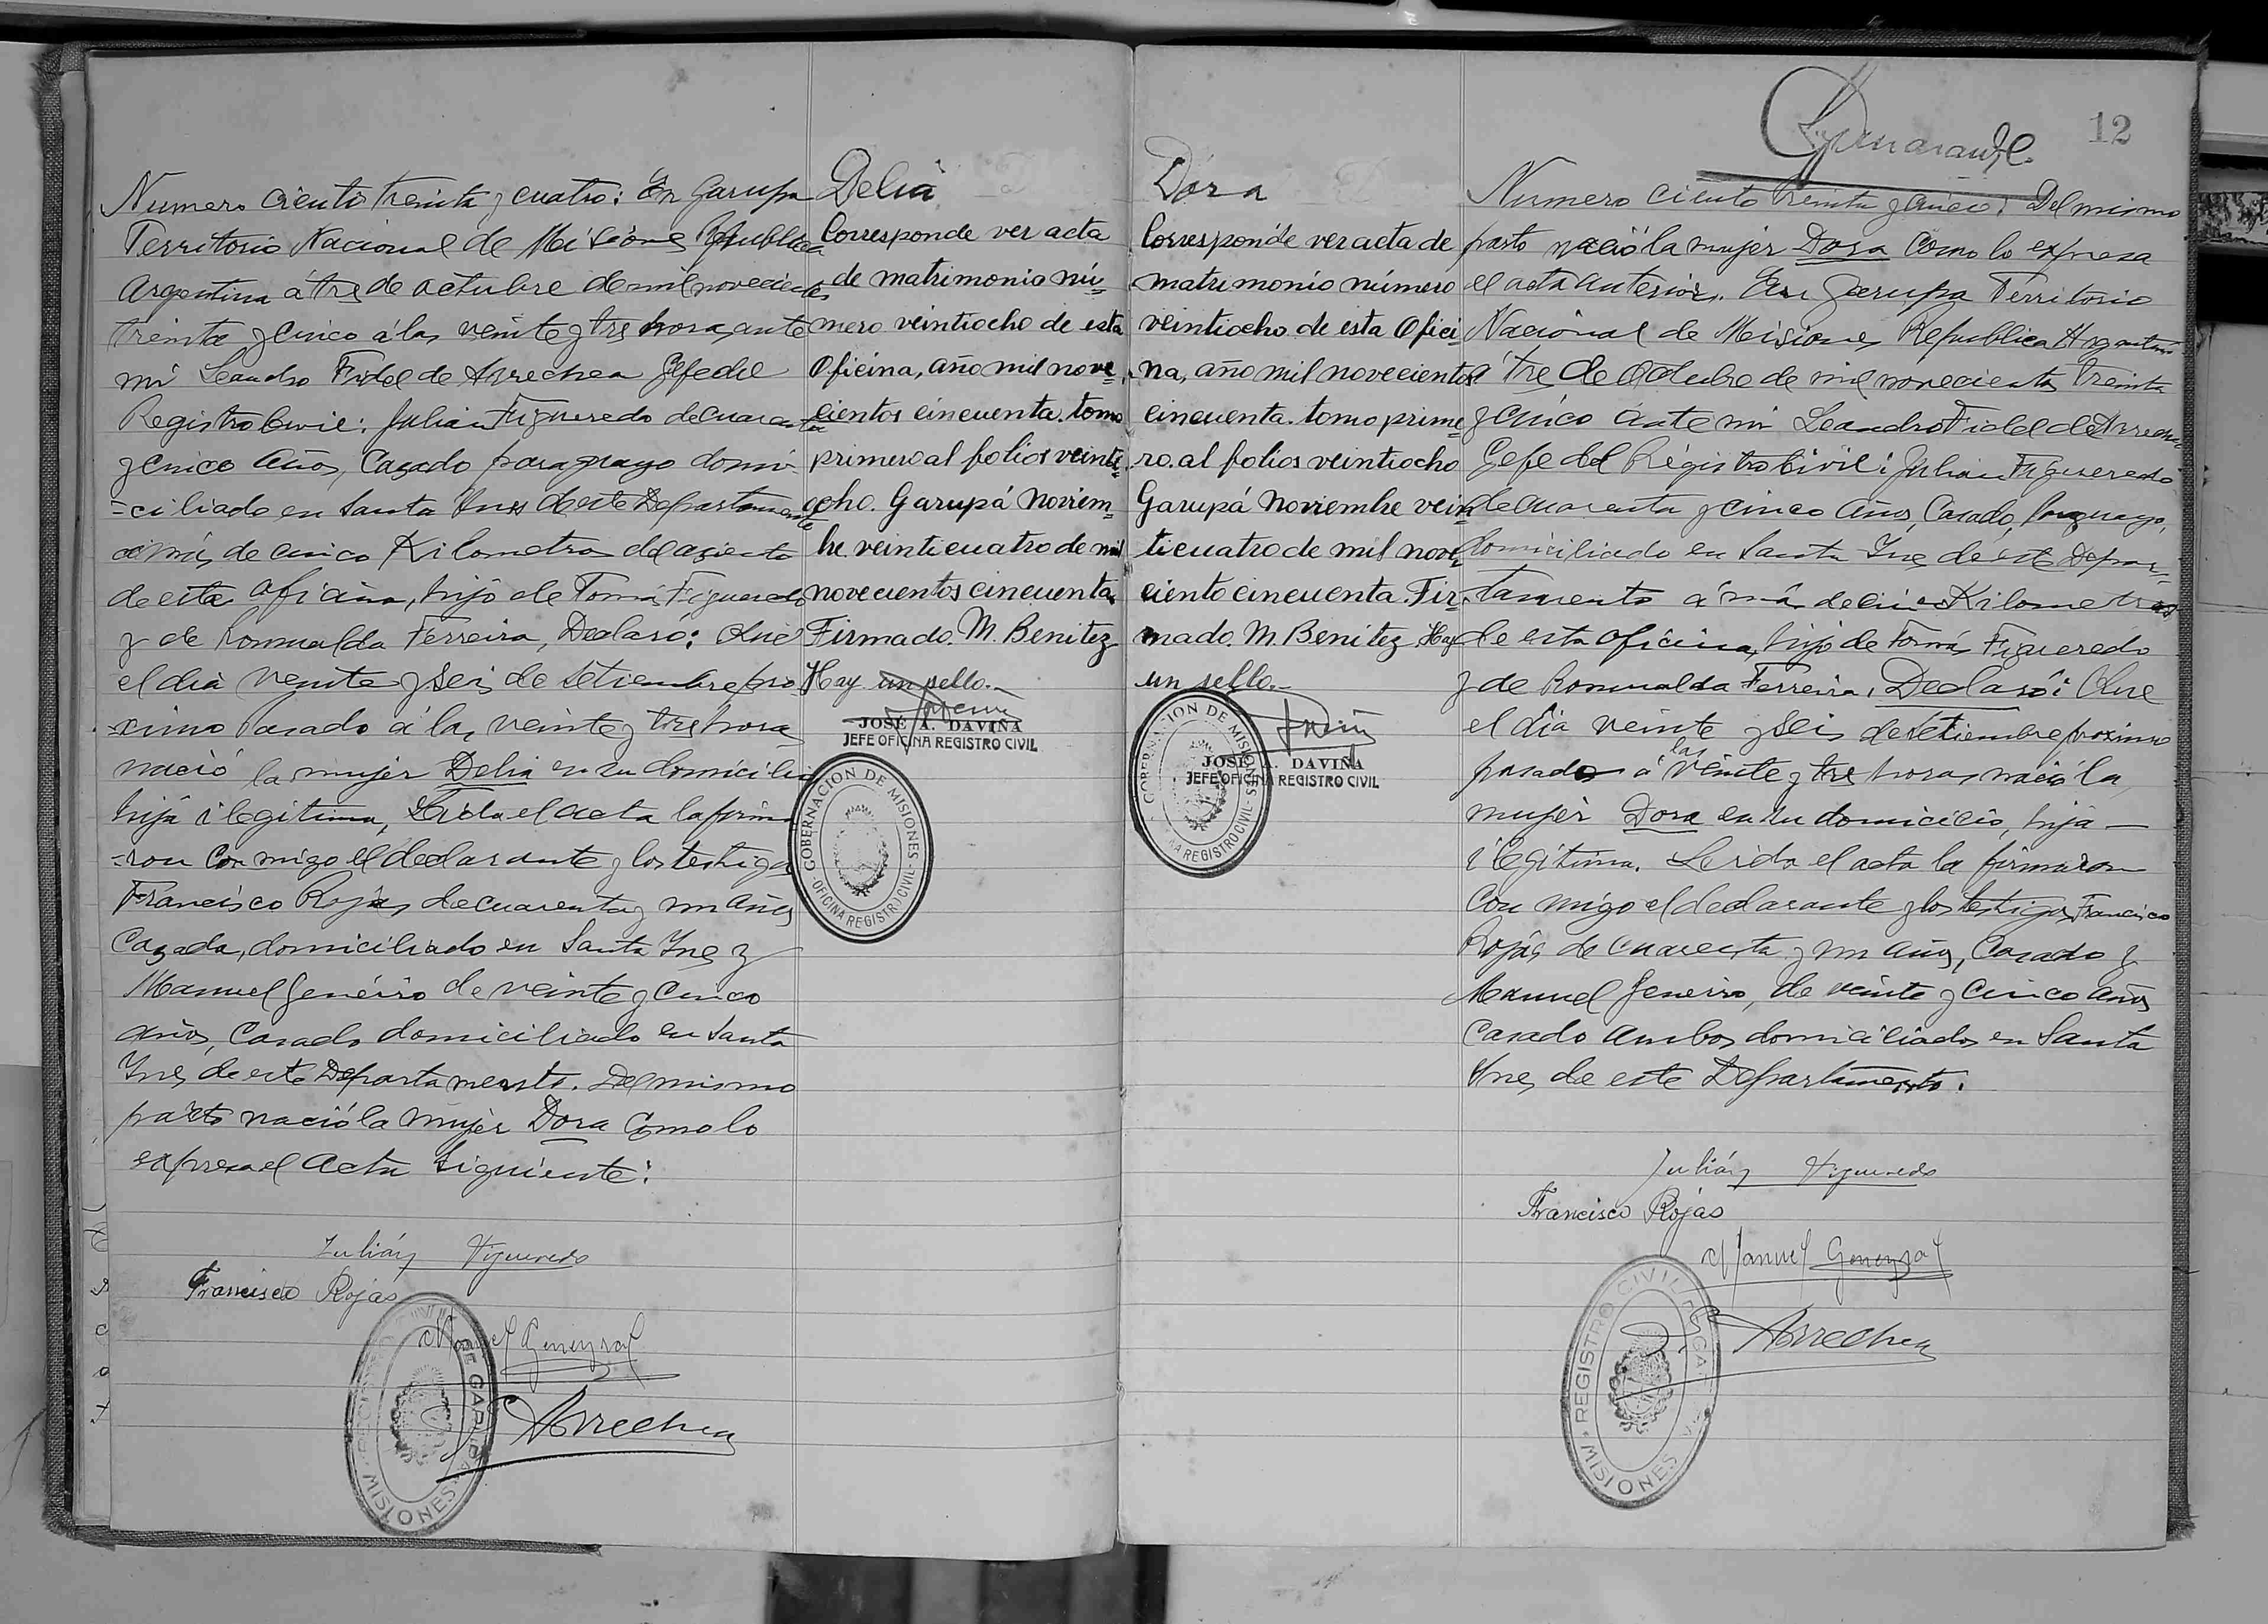 Numero ciento treinta y cuatro: En Garupa
Territorio Nacional de Misiones Republica
Argentina á tres de octubre de mil novecientos
treinta y cinco á las veinte y tres horas, ante
mi Leandro Fidel de Arrechea Gefe del
Registro Civil: Julian Figueredo de cuarenta
y cinco años, Casado paraguayo domi-
-ciliado en Santa Ines de este Departamento
á más de cinco Kilometros del asiento
de esta oficina, hijo de Tomás Figueredo
y de Romualda Ferreira, Declaró: Que
el dia veinte y seis de Setiembre pro-
-ximo pasado á las veinte y tres horas
nació la mujer Delia en su domicilio
hija ilegitima, Leida el acta la firma-
-ron con migo el declarante y los testigos
Francisco Rojas de cuarenta y un años
Casado, domiciliado en Santa Ines y
Manuel Geneiro de veinte y cinco
años, Casado domiciliado en Santa
Ines de este Departamento. Del mismo
parto nació la mujer Dora Como lo
expresa el acta siguiente:
Julián Figueredo
Francisco Rojas
Arrechea
MISIONES
Delia
Corresponde ver acta
de matrimonio nú-
mero veintiocho de esta
Oficina, año mil nove-
cientos cincuenta. tomo
primero al folios veinti-
ocho. Garupá Noviem-
bre veinticuatro de mil
novecientos cincuenta
Firmado. M. Benitez
Hay un sello.-
JOSÉ A. DAVIÑA
JEFE OFICINA REGISTRO CIVIL
GOBERNACION DE MISIONES
OFICINA REGISTRO CIVIL
Dora
Corresponde ver acta de
matrimonio número
veintiocho de esta Ofici-
na, año mil novecientos
cincuenta. tomo prime-
ro. al folios veintiocho
Garupá Noviembre vein-
ticuatro de mil nove-
ciento cincuenta. Fir-
mado. M. Benitez. Hay
un sello.-
JOSÉ A. DAVIÑA
JEFE OFICINA REGISTRO CIVIL
GOBERNACION DE MISIONES
REGISTRO CIVIL
12
Numero ciento treinta y cinco: Del mismo
parto nació la mujer Dora Como lo expresa
el acta anterior. En Garupa Territorio
Nacional de Misiones Republica Argentina
á tres de Octubre de mil novecientos treinta
y cinco ante mi Leandro Fidel de Arrechea
Gefe del Registro Civil: Julian Figueredo
de cuarenta y cinco años, Casado, Paraguayo,
domiciliado en Santa Ines de este Depar-
tamento á más de cinco Kilometros
de esta oficina, hijo de Tomás Figueredo
y de Romualda Ferreira, Declaró: Que
el dia veinte y seis de Setiembre proximo
pasado á las veinte y tres horas nació la
mujer Dora en su domicilio, hija
ilegitima. Leida el acta la firmaron
Con migo el declarante y los testigos Francisco
Rojas de cuarenta y un años, Casado y
Manuel Geneiro, de veinte y cinco años
Casado ambos domiciliados en Santa
Ines de este Departamento.
Julián Figueredo
Francisco Rojas
Manuel
Arrechea
REGISTRO CIVIL
MISIONES